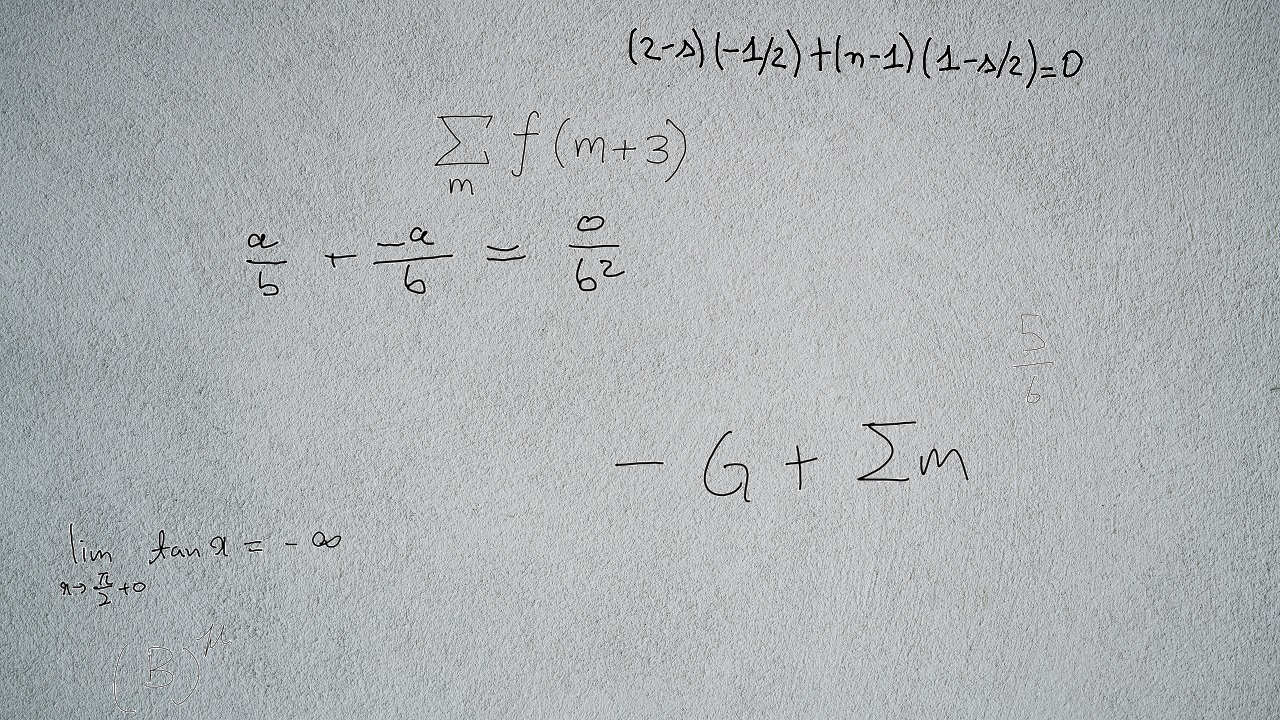 (2-s)(-1/2)+(n-1)(1-s/2)=0
\sum_{m} f(m+3)
\frac{a}{b} + \frac{-a}{b} = \frac{0}{b^2}
\frac{5}{6}
- G + \sum m
\lim_{x \to \frac{\pi}{2}+0} \tan x = -\infty
(B)^{\mu}